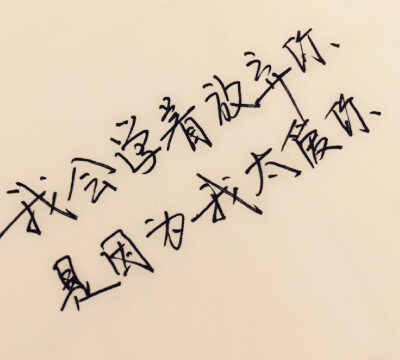 我会学着放弃你、
是因为我太爱你、